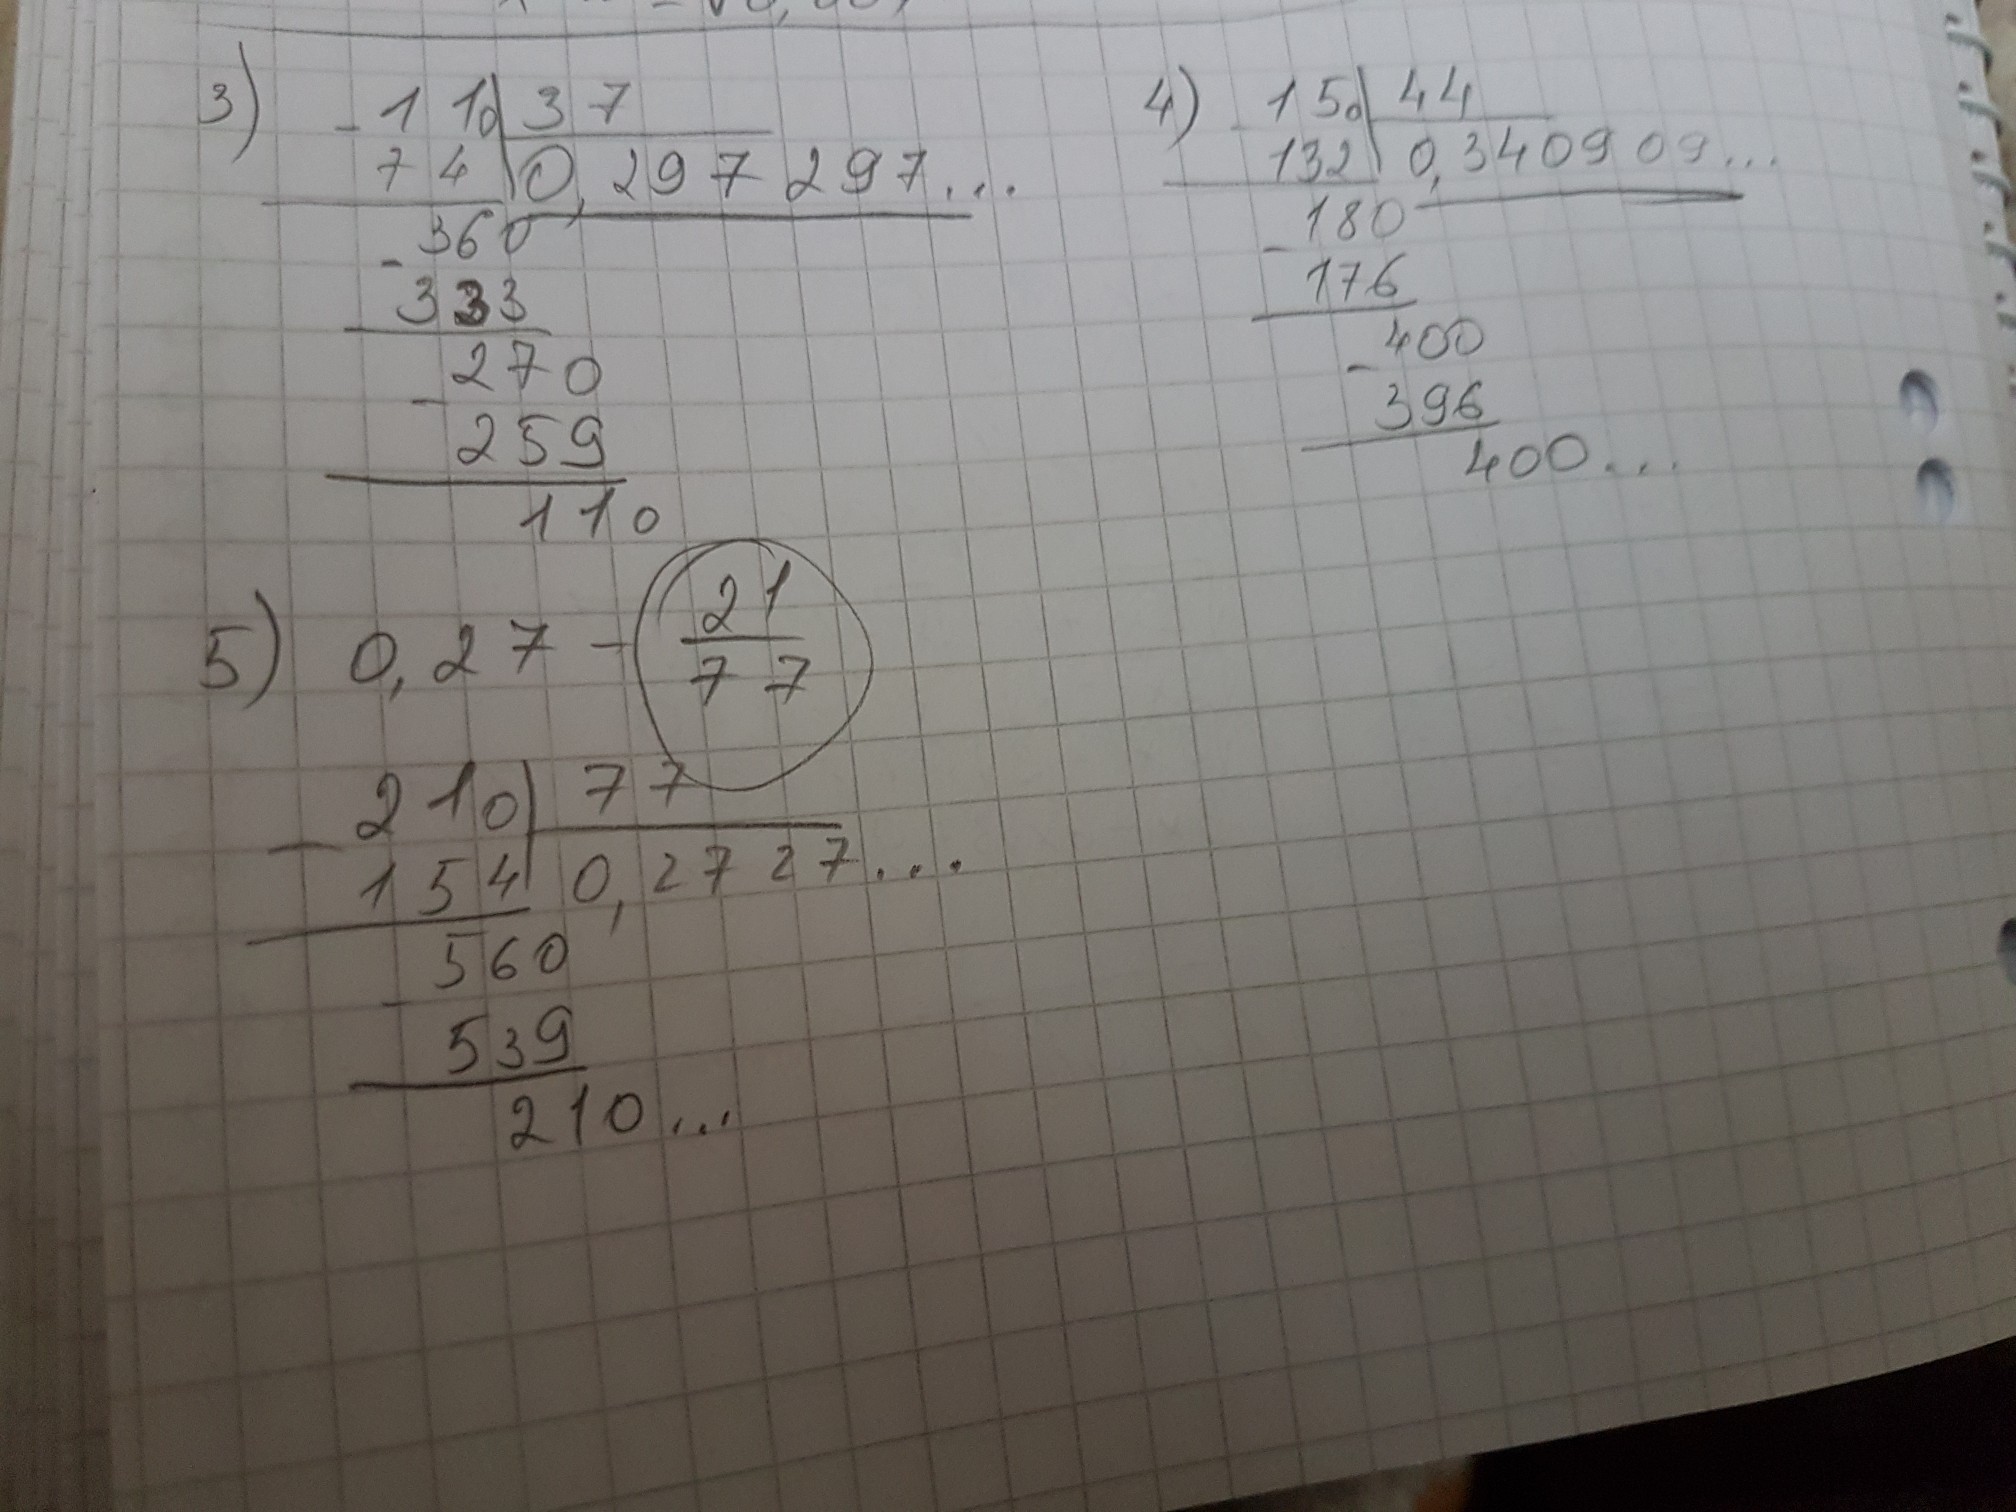 3) - 110 | 37
74 | 0,297297...
- 360
333
- 270
259
110
4) - 150 | 44
132 | 0,340909...
- 180
176
- 400
396
400...
5) 0,27 - 21/77
- 210 | 77
154 | 0,2727...
- 560
539
210...